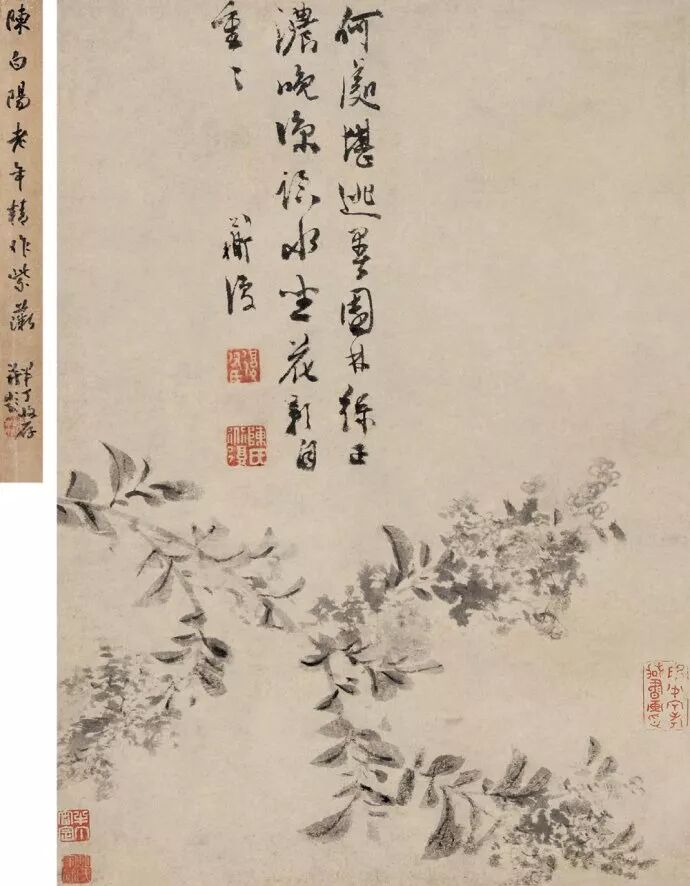 何處堪逃暑園林綠正
濃晚涼臨水坐花影自
重〻
道復
陳氏道復
陳白陽老年精作紫薇
半丁收存